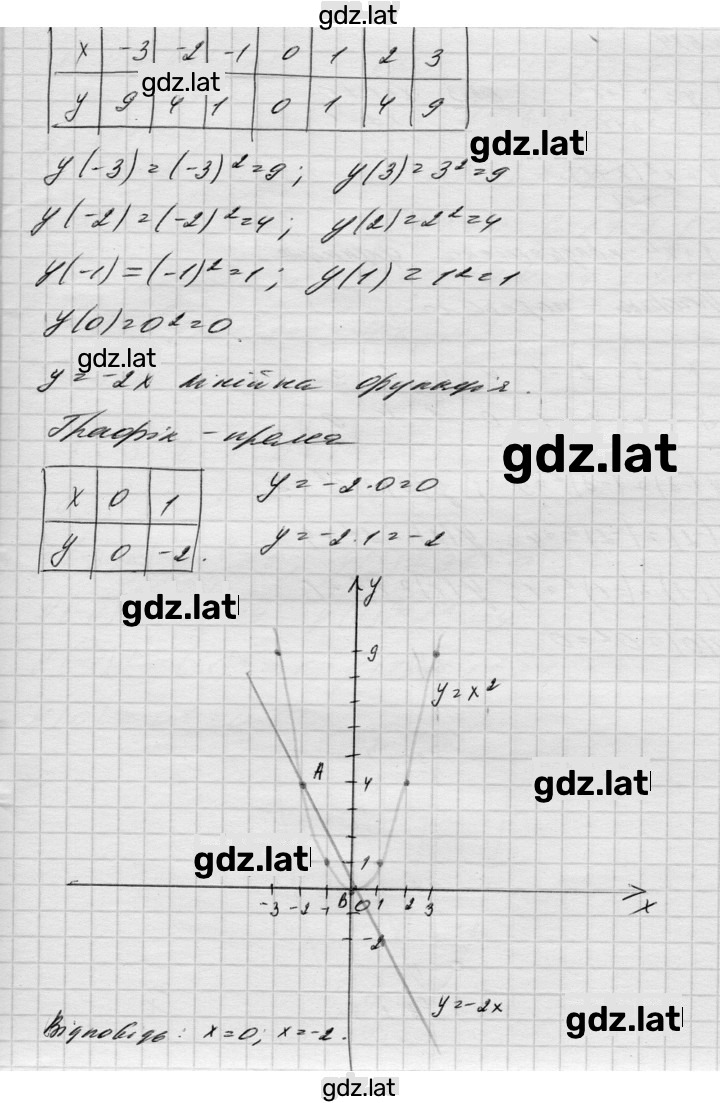 gdz.lat
x -3 -2 -1 0 1 2 3
gdz.lat
y 9 4 1 0 1 4 9
gdz.lat
y(-3) = (-3)² = 9; y(3) = 3² = 9
y(-2) = (-2)² = 4; y(2) = 2² = 4
y(-1) = (-1)² = 1; y(1) = 1² = 1
y(0) = 0² = 0
gdz.lat
y = -2x лінійна функція.
Графік - пряма
gdz.lat
x 0 1 y = -2·0 = 0
y 0 -2. y = -2·1 = -2
gdz.lat
y
9
y = x²
A 4
gdz.lat
gdz.lat
1
-3 -2 -1 B 0 1 2 3 x
-2
y = -2x
gdz.lat
Відповідь: x = 0; x = -2.
gdz.lat